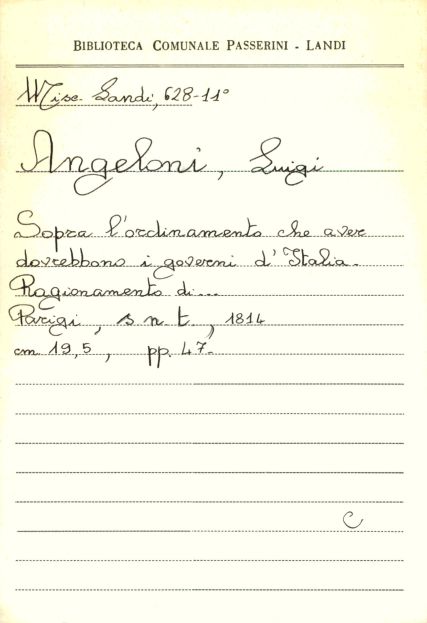 BIBLIOTECA COMUNALE PASSERINI - LANDI
Misc. Landi, 628-11°
Angeloni, Luigi
Sopra l'ordinamento che aver
dovrebbono i governi d'Italia.
Ragionamento di...
Parigi, s n t, 1814
cm 19,5, pp. 47.
C